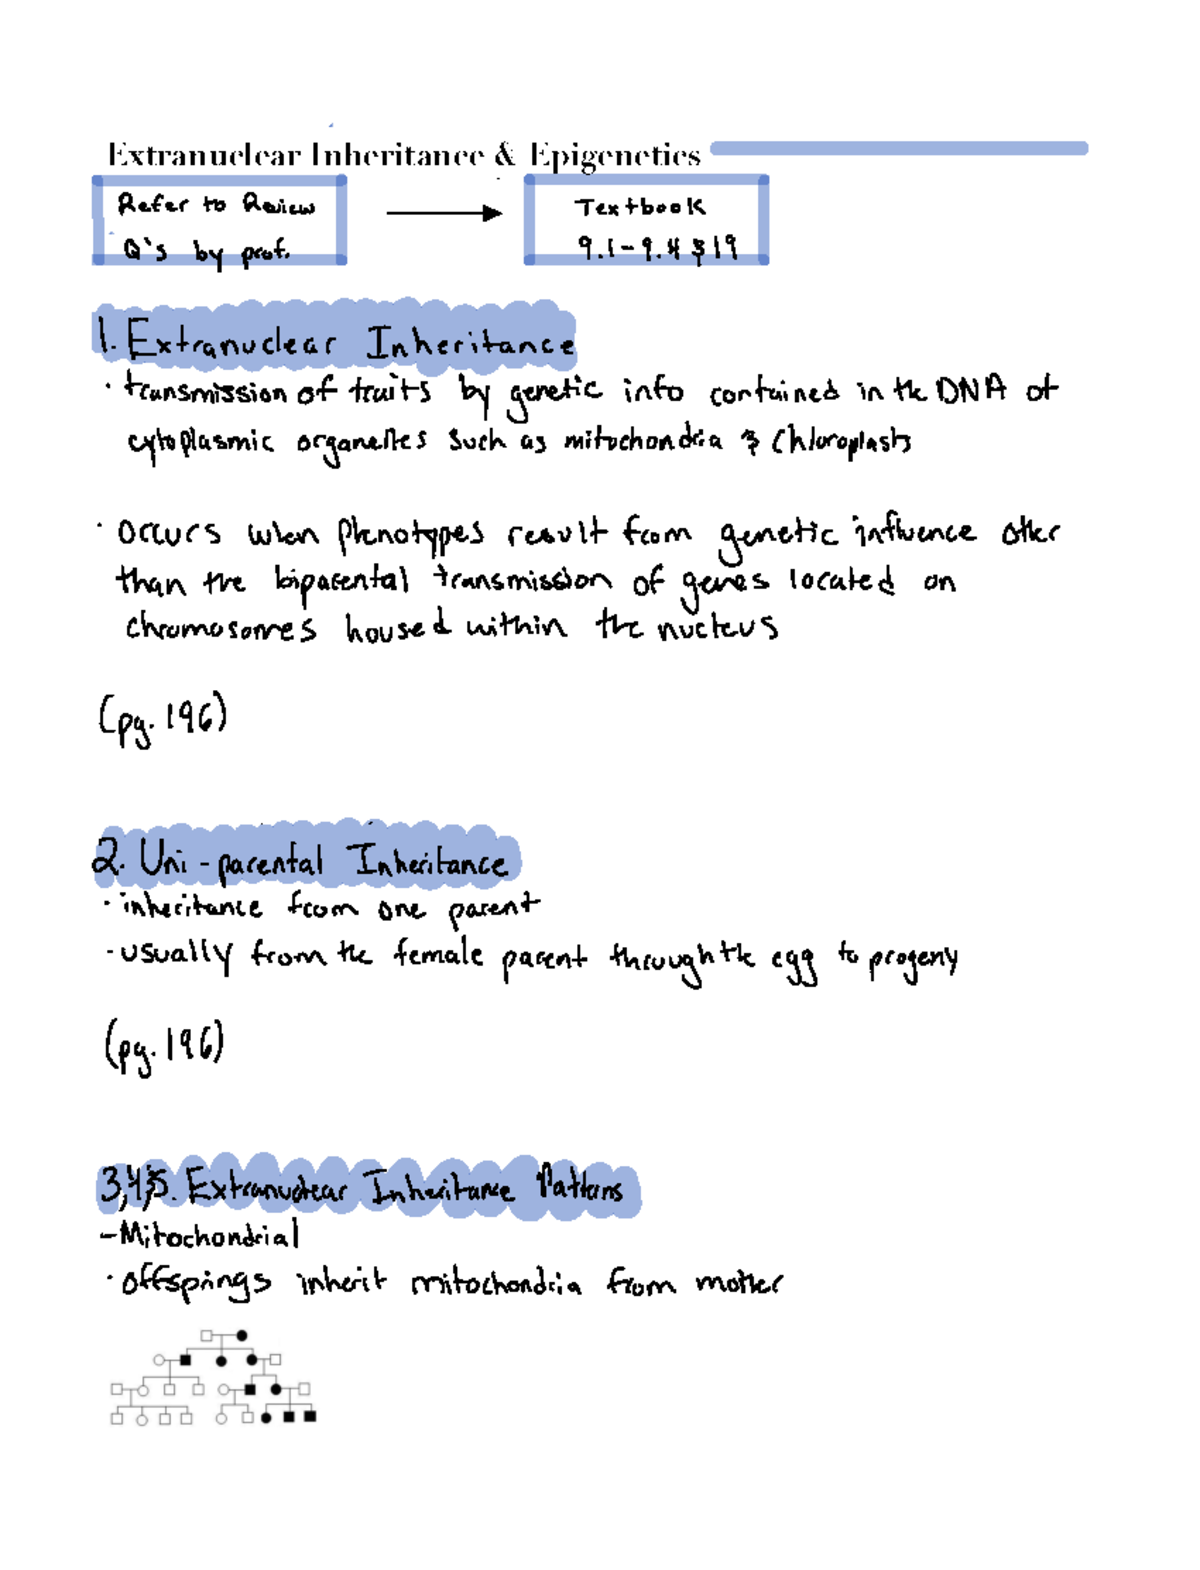 Extranuclear Inheritance & Epigenetics
Refer to Review
Q's by prof.
Textbook
9.1-9.4 & 19
1. Extranuclear Inheritance
· transmission of traits by genetic info contained in the DNA of
cytoplasmic organelles such as mitochondria & chloroplasts
· occurs when phenotypes result from genetic influence other
than the biparental transmission of genes located on
chromosomes housed within the nucleus
(pg. 196)
2. Uni-parental Inheritance
· inheritance from one parent
- usually from the female parent through the egg to progeny
(pg. 196)
3,4,5. Extranuclear Inheritance Patterns
- Mitochondrial
· offsprings inherit mitochondria from mother